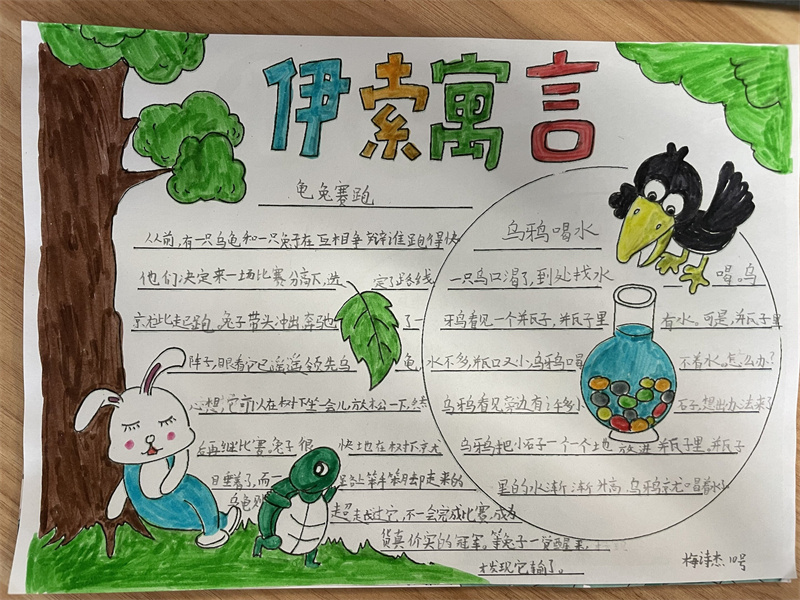 伊索寓言
龟兔赛跑
从前,有一只乌龟和一只兔子在互相争辩谁跑得快
他们决定来一场比赛分高下,选 定了路线
就此起跑 兔子带头冲出 奔驰 了一
阵子,眼看它已遥遥领先乌 龟,
心想,它可以在树下坐一会儿,放松一下,然
后再继比赛 兔子很 快地在树下
睡着了,而一
乌龟 超过它,不一会完成比赛,成为
货真价实的冠军。等兔子一觉醒来,
才发现它输了。
乌鸦喝水
一只乌口渴了,到处找水 喝。乌
鸦乌看见一个并瓦子,并瓦子里 有水。可是,并瓦子里
水不多,瓶口又小,乌鸦乌喝 不着水。怎么办?
乌鸦乌看见旁边有许多小 石子,想出办法来了
乌鸦把小石子一个一个地 放进并瓦子里。并瓦子
里的水渐渐升高 乌鸦就喝着水
梅诗杰 10号